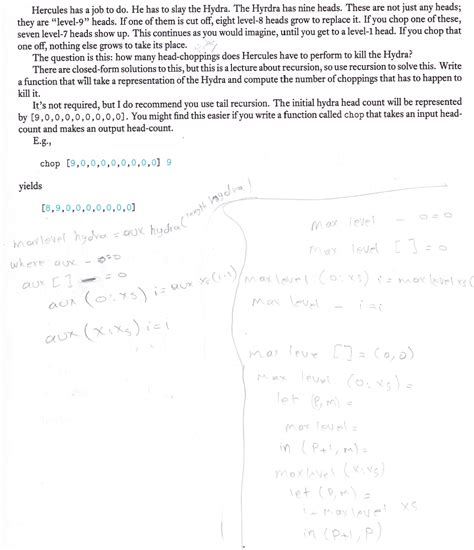 Hercules has a job to do. He has to slay the Hydra. The Hyrdra has nine heads. These are not just any heads;
they are "level-9" heads. If one of them is cut off, eight level-8 heads grow to replace it. If you chop one of these,
seven level-7 heads show up. This continues as you would imagine, until you get to a level-1 head. If you chop that
one off, nothing else grows to take its place.
The question is: how many head-choppings does Hercules have to perform to kill the Hydra?
There are closed-form solutions to this, but this is a lecture about recursion, so use recursion to solve this. Write
a function that will take a representation of the Hydra and compute the number of choppings that has to happen to
kill it.
It's not required, but I do recommend you use tail recursion. The initial hydra head count will be represented
by [9,0,0,0,0,0,0,0,0]. You might find this easier if you write a function called chop that takes an input head-
count and makes an output head-count.
E.g.,
chop [9,0,0,0,0,0,0,0,0] 9
yields
[8,9,0,0,0,0,0,0,0]
maxlevel hydra = aux hydra (length hydra)
where aux - 0=0
aux [] = 0
aux (0:xs) i = aux xs (i-1)
aux (x:xs) i = i
max level - 0=0
max level [] = 0
max level (0:xs) i = max level xs (
max level - i = i
max level [] = (0,0)
max level (0:xs) =
let (p,m) =
max level =
in (p+1, m) =
maxlevel (x:xs)
let (p,m) =
1 - maxlevel xs
in (p+1, p)